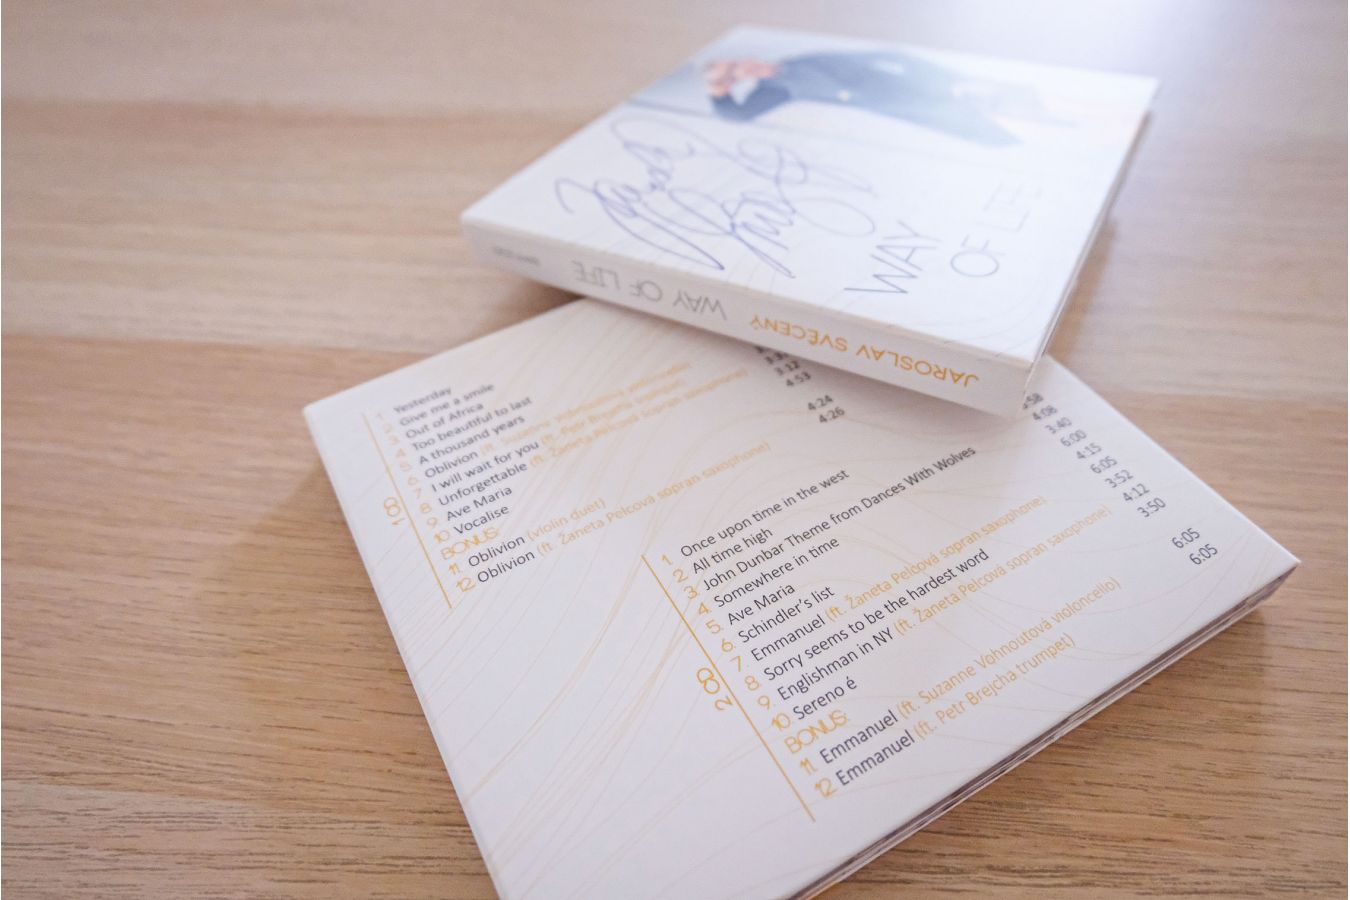 WAY
OF LIFE
WAY OF LIFE JAROSLAV SVĚCENÝ
1CD
1 Yesterday
2 Give me a smile
3 Out of Africa
4 Too beautiful to last
5 A thousand years
6 Oblivion (ft. Suzanne Vohnoutová violoncello)
7 I will wait for you (ft. Petr Brejcha trumpet)
8 Unforgettable (ft. Žaneta Pelcová sopran saxophone)
9 Ave Maria
10 Vocalise
BONUS:
11 Oblivion (violin duet)
12 Oblivion (ft. Žaneta Pelcová sopran saxophone)
3:12
4:53
4:24
4:26
2CD
1 Once upon time in the west
2 All time high
3 John Dunbar Theme from Dances With Wolves
4 Somewhere in time
5 Ave Maria
6 Schindler's list
7 Emmanuel (ft. Žaneta Pelcová sopran saxophone)
8 Sorry seems to be the hardest word
9 Englishman in NY (ft. Žaneta Pelcová sopran saxophone)
10 Sereno é
BONUS:
11 Emmanuel (ft. Suzanne Vohnoutová violoncello)
12 Emmanuel (ft. Petr Brejcha trumpet)
4:08
3:40
6:00
4:15
6:05
3:52
4:12
3:50
6:05
6:05